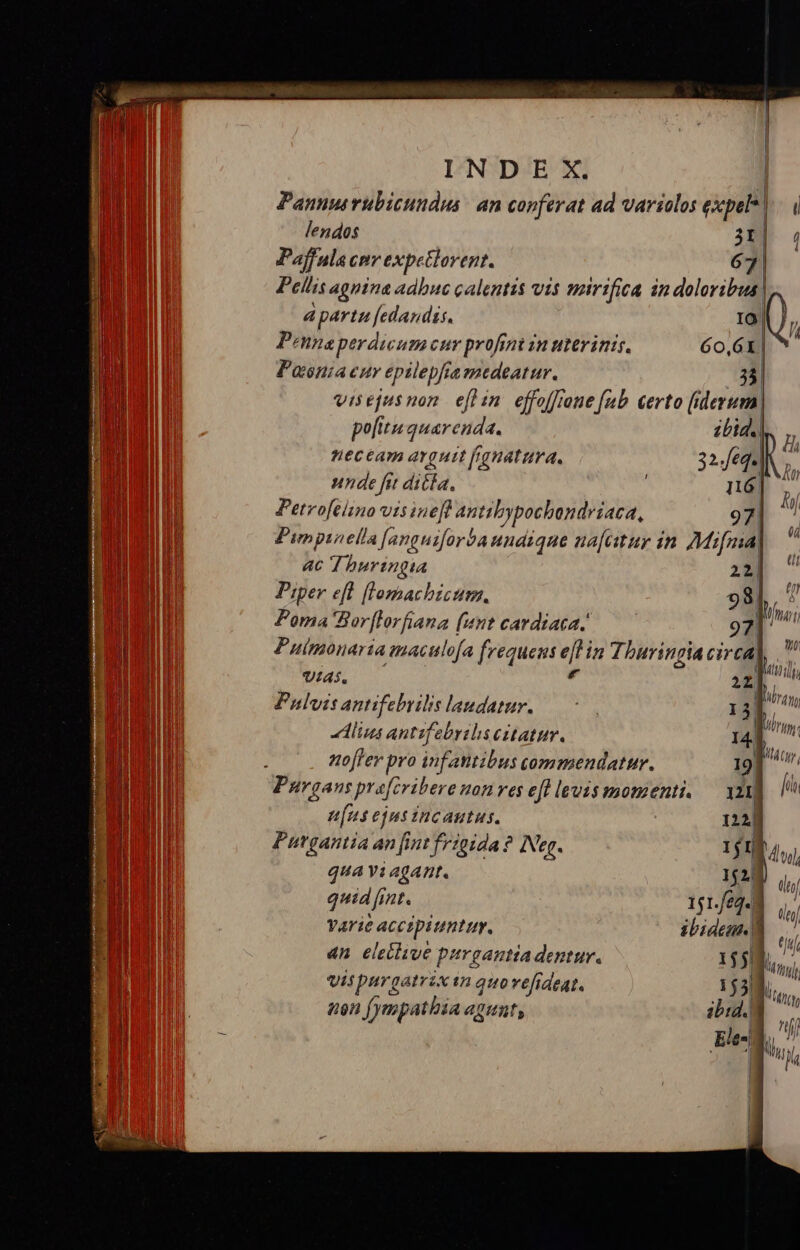 INDEX.
Pannus rubicundus an conferat ad variolos expel-
lendos 31
Paſſula cur expectorent. 67
Pellis agnina adhuc calentis vis mirifica in doloribus
à partu ſedandis. 10
Penna perdicum cur proſint in uterinis. 60,61
Pæonia cur epilepſiæ medeatur. 33
vis ejus non eſt in effoſſione ſub certo ſiderum
poſitu quærenda. ibid.
nec eam arguit ſignatura. 32. ſeq.
unde ſit dicta. 116
Petroſelino vis ineſt antihypochondriaca, 97
Pimpinella ſanguiſorba undique naſcitur in Miſnia
ac Thuringia 22
Piper eſt ſtomachicum. 98
Poma Borſtorfiana ſunt cardiaca. 97
Pulmonaria maculoſa frequens eſt in Thuringia circa
vias. 22
Pulvis antifebrilis laudatur. 13
Alius antifebrilis citatur. 14
noſter pro infantibus commendatur. 19
Purgans præſcribere non res eſt levis momenti. 121
uſus ejus incautus. 122
Purgantia an ſint frigida? Neg. 151
qua vi agant. 152
quid ſint. 151. ſeq.
varie accipiuntur. ibidem.
an elective purgantia dentur. 155
vis purgatrix in quo reſideat. 153
non ſympathia agunt, ibid.
Ele-